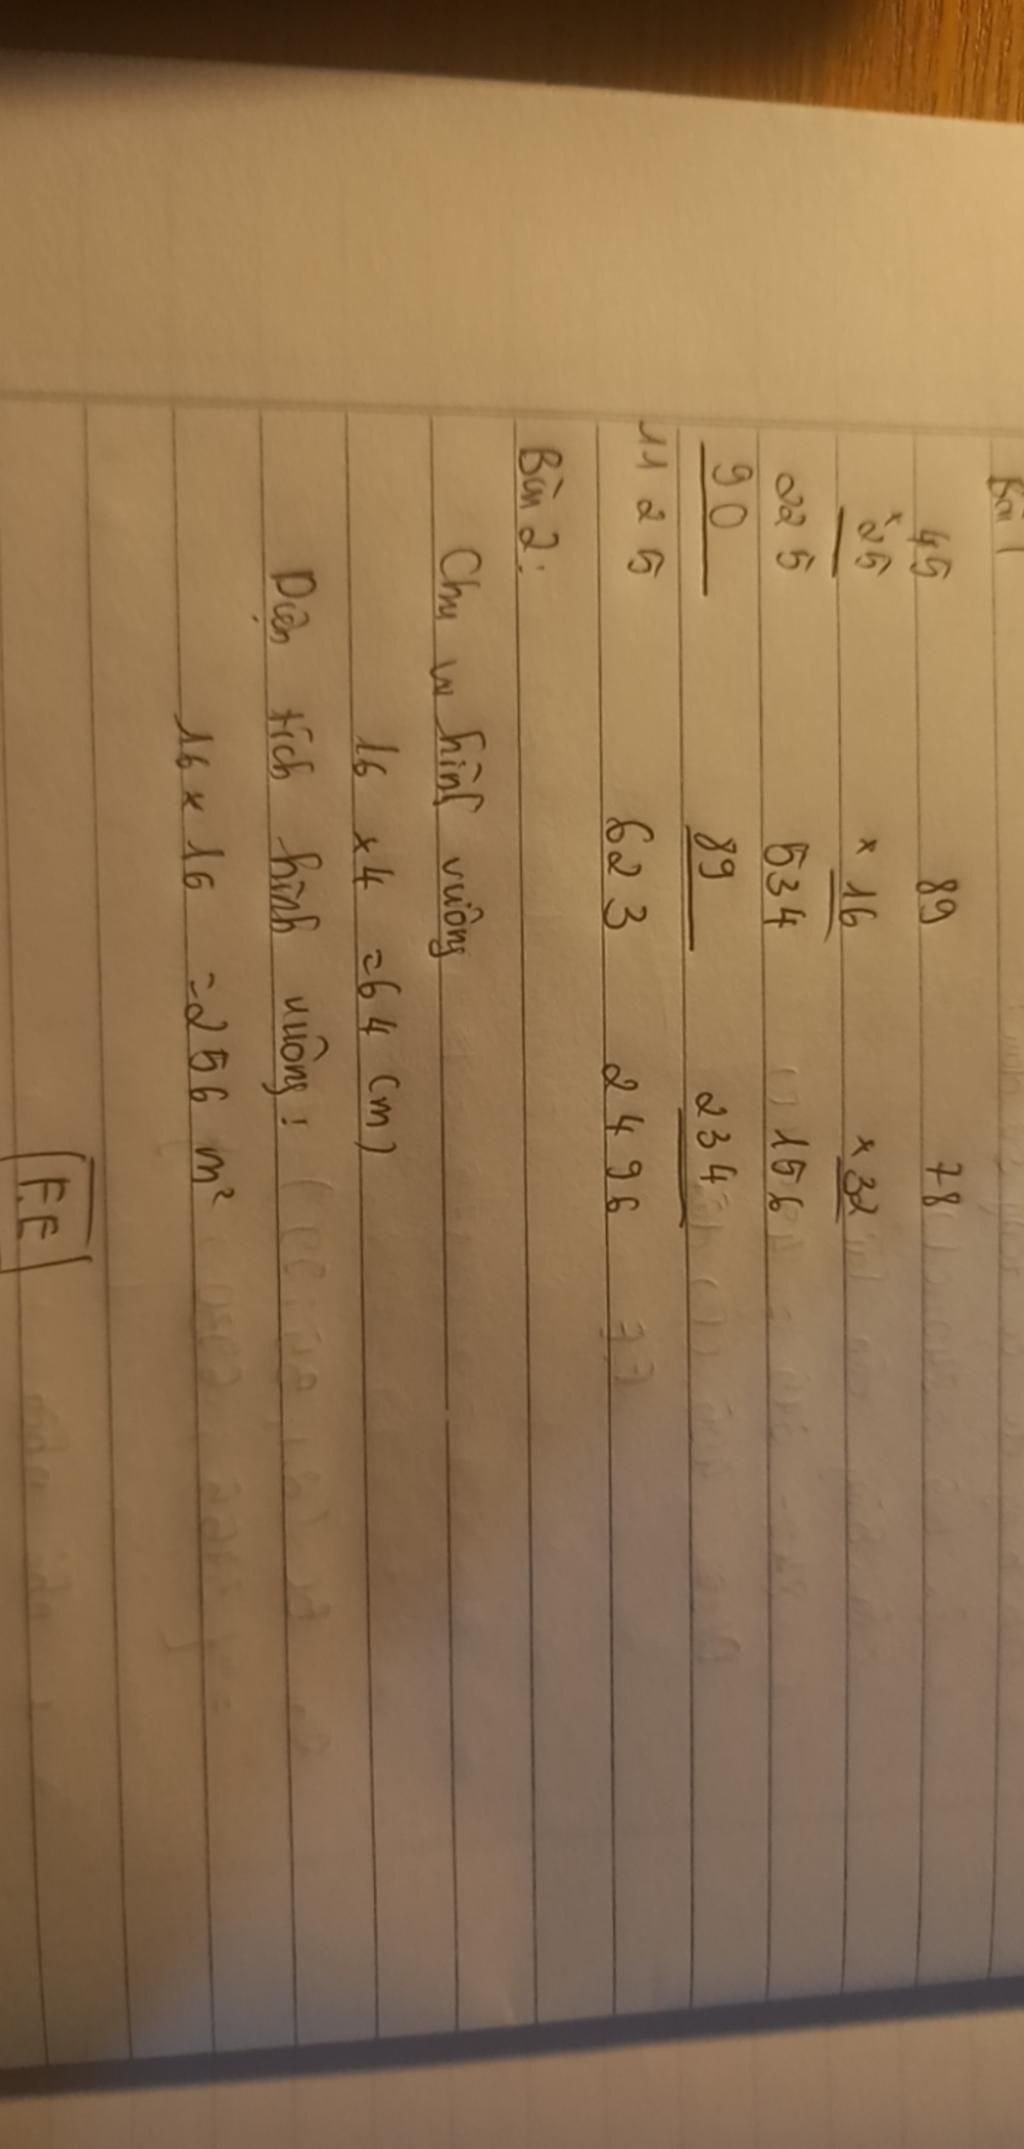 Bài 1
45 89 78
x 25 x 16 x 32
225 534 156
90 89 234
1125 623 2496
Bài 2:
Chu vi hình vuông
16 x 4 = 64 (m)
Diện tích hình vuông:
16 x 16 = 256 m²
F.E